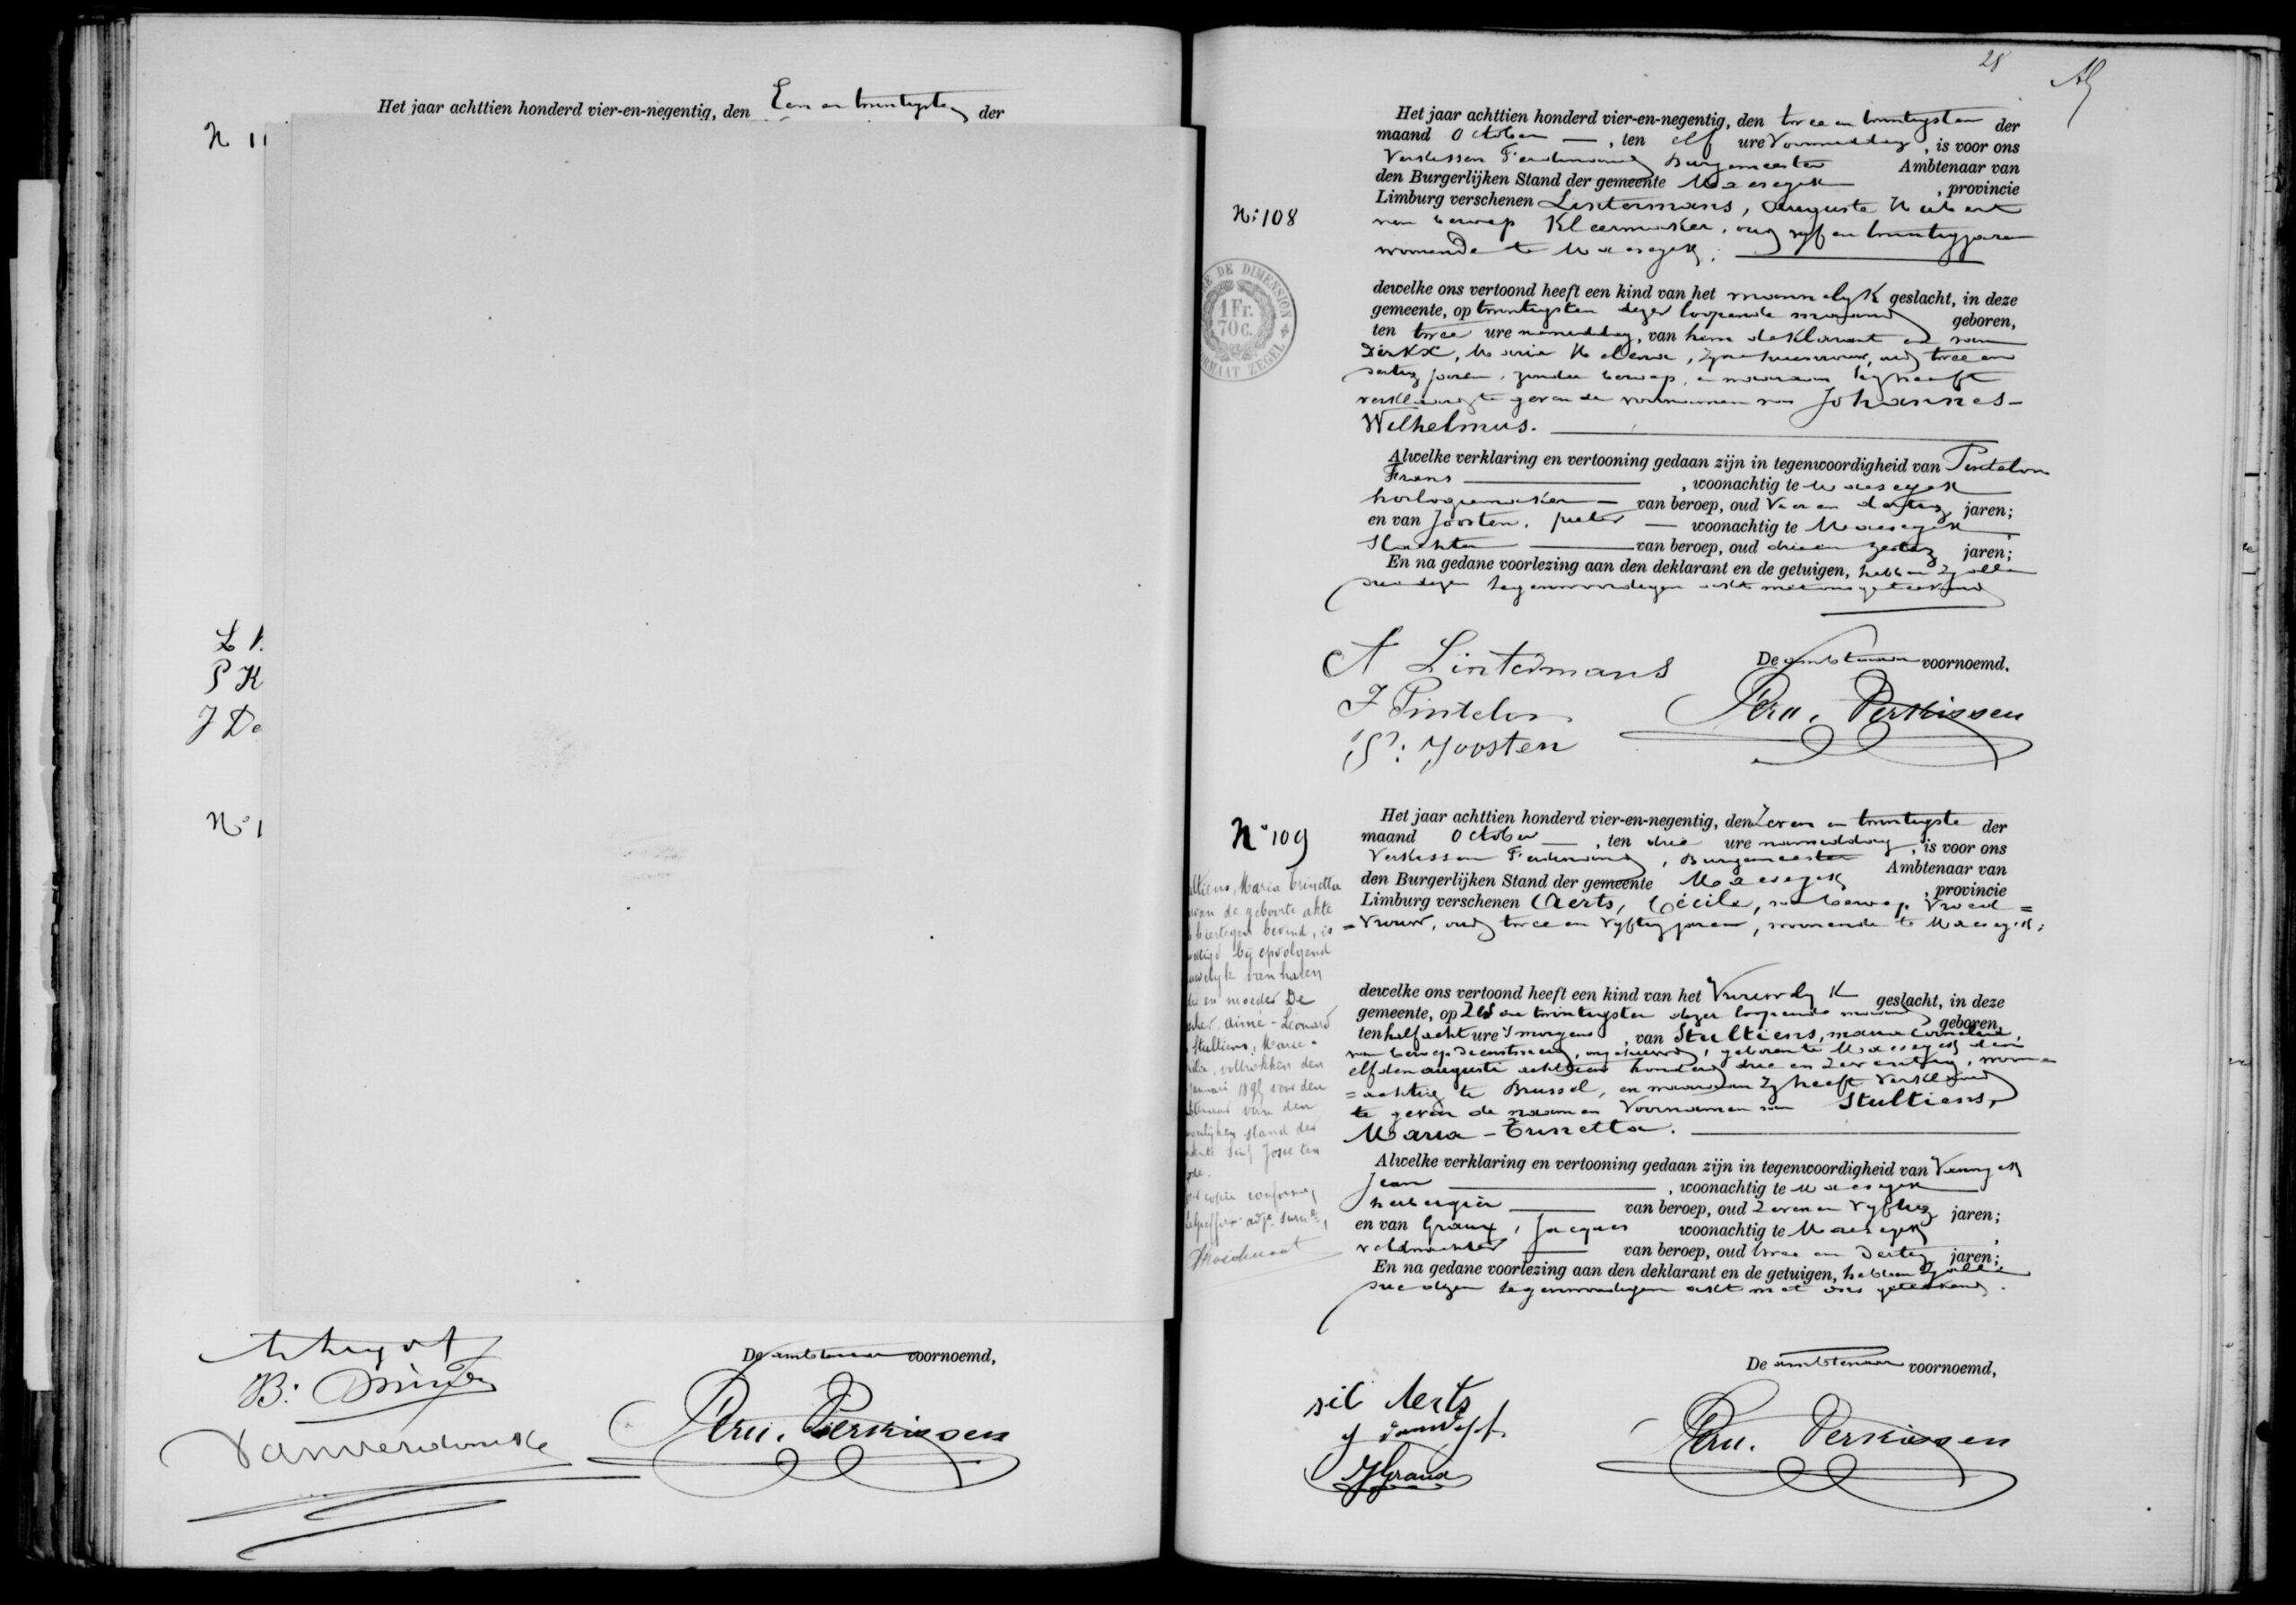 Het jaar achttien honderd vier-en-negentig, den Een en twintigsten der
N 11
L V.
P K
J De
N° 1
B:
De ambtenaar voornoemd,
Ferd. Verkissen
28
Het jaar achttien honderd vier-en-negentig, den twee en twintigsten der
maand October —, ten elf ure Voormiddag, is voor ons
Verkissen Ferdinand Burgemeester Ambtenaar van
den Burgerlijken Stand der gemeente Maeseyck, provincie
N: 108
Limburg verschenen Lintermans, Auguste Hubert
van beroep Kleermaker, oud vyf en twintig jaren
wonende te Maeseyck;
DE DIMENSION
1 Fr.
70 c.
FORMAAT ZEGEL
dewelke ons vertoond heeft een kind van het mannelyk geslacht, in deze
gemeente, op twintigsten dezer loopende maand geboren,
ten twee ure namiddag, van hem deklarant en van
Dirkx, Maria Helena, zyne huisvrouw, oud twee en
dertig jaren, zonder beroep, en waaraan hy heeft
verklaard te geven de voornamen van Johannes-
Wilhelmus.
Alwelke verklaring en vertooning gedaan zijn in tegenwoordigheid van Pintelon
Frans, woonachtig te Maeseyck
horlogiemaker — van beroep, oud Vier en dertig jaren;
en van Joosten, pieter — woonachtig te Maeseyck
Slachter — van beroep, oud drie en zestig jaren;
En na gedane voorlezing aan den deklarant en de getuigen, hebben zy alle
dry dezen tegenwoordigen akt met ons geteekend
A Lintermans
De ambtenaar voornoemd.
F Pintelon
Ferd. Verkissen
P: Joosten
N° 109
Het jaar achttien honderd vier-en-negentig, den Zeven en twintigste der
maand October —, ten drie ure namiddag, is voor ons
Verkissen Ferdinand, Burgemeester Ambtenaar van
den Burgerlijken Stand der gemeente Maeseyck, provincie
Limburg verschenen Aerts, Cécile, van beroep Vroed=
=Vrouw, oud twee en Vyftig jaren, wonende te Maeseyck;
ltiens, Maria Trinetta
van de geboorte akte
hiertegen bevind, is
bij opvolgend
van haren
en moeder De
Aimé-Léonard
Stultiens, Marie-
voltrokken den
januari 189 voor den
van den
stand der
Sint Josse ten
copie conforme,
dewelke ons vertoond heeft een kind van het Vrouwelyk geslacht, in deze
gemeente, op Zes en twintigsten dezer loopende maand geboren,
ten half acht ure 's morgens, van Stultiens, maria Cornelia,
van beroep Dienstmeid, ongehuwd, geboren te Maeseyck den
elfden augusti achttien honderd drie en zeventig, woon=
=achtig te Brussel, en waaraan zy heeft verklaard
te geven de naam en Voornamen van Stultiens,
Maria-Trinetta.
Alwelke verklaring en vertooning gedaan zijn in tegenwoordigheid van
Jean, woonachtig te Maeseyck
herbergier — van beroep, oud Zeven en Vyftig jaren;
en van Graux, Jacques woonachtig te Maeseyck
veldwachter — van beroep, oud twee en Dertig jaren;
En na gedane voorlezing aan den deklarant en de getuigen, hebben zy alle
dry dezen tegenwoordigen akt met ons geteekend.
De ambtenaar voornoemd,
sil Aerts
Ferd. Verkissen
J Graux